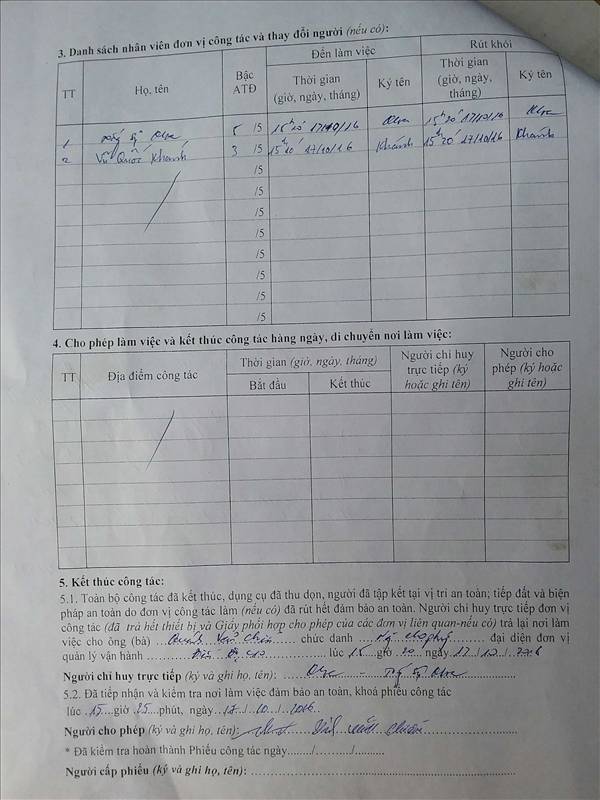 3. Danh sách nhân viên đơn vị công tác và thay đổi người (nếu có):
TT Họ, tên Bậc ATĐ Đến làm việc Rút khỏi
Thời gian (giờ, ngày, tháng) Ký tên Thời gian (giờ, ngày, tháng) Ký tên
1 5 /5 17/10/16 15h20' 17/10/16
2 Vũ Quốc Khánh 3 /5 17/10/16 Khánh 15h20' 17/10/16 Khánh
/5
/5
/5
/5
/5
/5
/5
/5
4. Cho phép làm việc và kết thúc công tác hàng ngày, di chuyển nơi làm việc:
TT Địa điểm công tác Thời gian (giờ, ngày, tháng) Người chỉ huy trực tiếp (ký hoặc ghi tên) Người cho phép (ký hoặc ghi tên)
Bắt đầu Kết thúc
5. Kết thúc công tác:
5.1. Toàn bộ công tác đã kết thúc, dụng cụ đã thu dọn, người đã tập kết tại vị trí an toàn; tiếp đất và biện
pháp an toàn do đơn vị công tác làm (nếu có) đã rút hết đảm bảo an toàn. Người chỉ huy trực tiếp đơn vị
công tác (đã trả hết thiết bị và Giấy phối hợp cho phép của các đơn vị liên quan-nếu có) trả lại nơi làm
việc cho ông (bà) chức danh đại diện đơn vị
quản lý vận hành lúc 15 giờ 20 ngày 17 / 10 /
Người chỉ huy trực tiếp (ký và ghi họ, tên):
5.2. Đã tiếp nhận và kiểm tra nơi làm việc đảm bảo an toàn, khoá phiếu công tác
lúc 15 giờ 25 phút, ngày 17 / 10 / 2016
Người cho phép (ký và ghi họ, tên):
* Đã kiểm tra hoàn thành Phiếu công tác ngày......../............/..........
Người cấp phiếu (ký và ghi họ, tên):